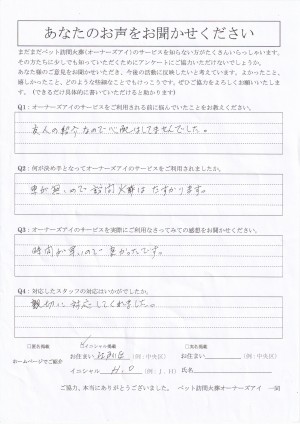 あなたのお声をお聞かせください
まだまだペット訪問火葬(オーナーズアイ)のサービスを知らない方がたくさんいらっしゃいます。
その方たちに少しでも知っていただくためにアンケートにご協力いただけないでしょうか。
あなた様のご意見をお聞かせいただき、今後の活動に反映したいと考えています。よかったこと、
嬉しかったこと、どのような些細なことでもけっこうです。ぜひご協力をよろしくお願いいたします。
(できるだけ具体的に書いていただけると助かります)
Q1:オーナーズアイのサービスをご利用される前に悩んでいたことをお教えください。
友人の紹介なので心配はしてませんでした。
Q2:何が決め手となってオーナーズアイのサービスをご利用されましたか。
車が無いので訪問火葬はたすかります。
Q3:オーナーズアイのサービスを実際にご利用なさってみての感想をお聞かせください。
時間が早いので良かったです。
Q4:対応したスタッフの対応はいかがでしたか。
親切に対応してくれました。
□匿名掲載 イニシャル掲載 □実名掲載
ホームページでご紹介
お住まい (例:中央区) お住まい (例:中央区)
イニシャル H.O (例:J.H) 氏名
ご協力、本当にありがとうございました。 ペット訪問火葬オーナーズアイ 一同